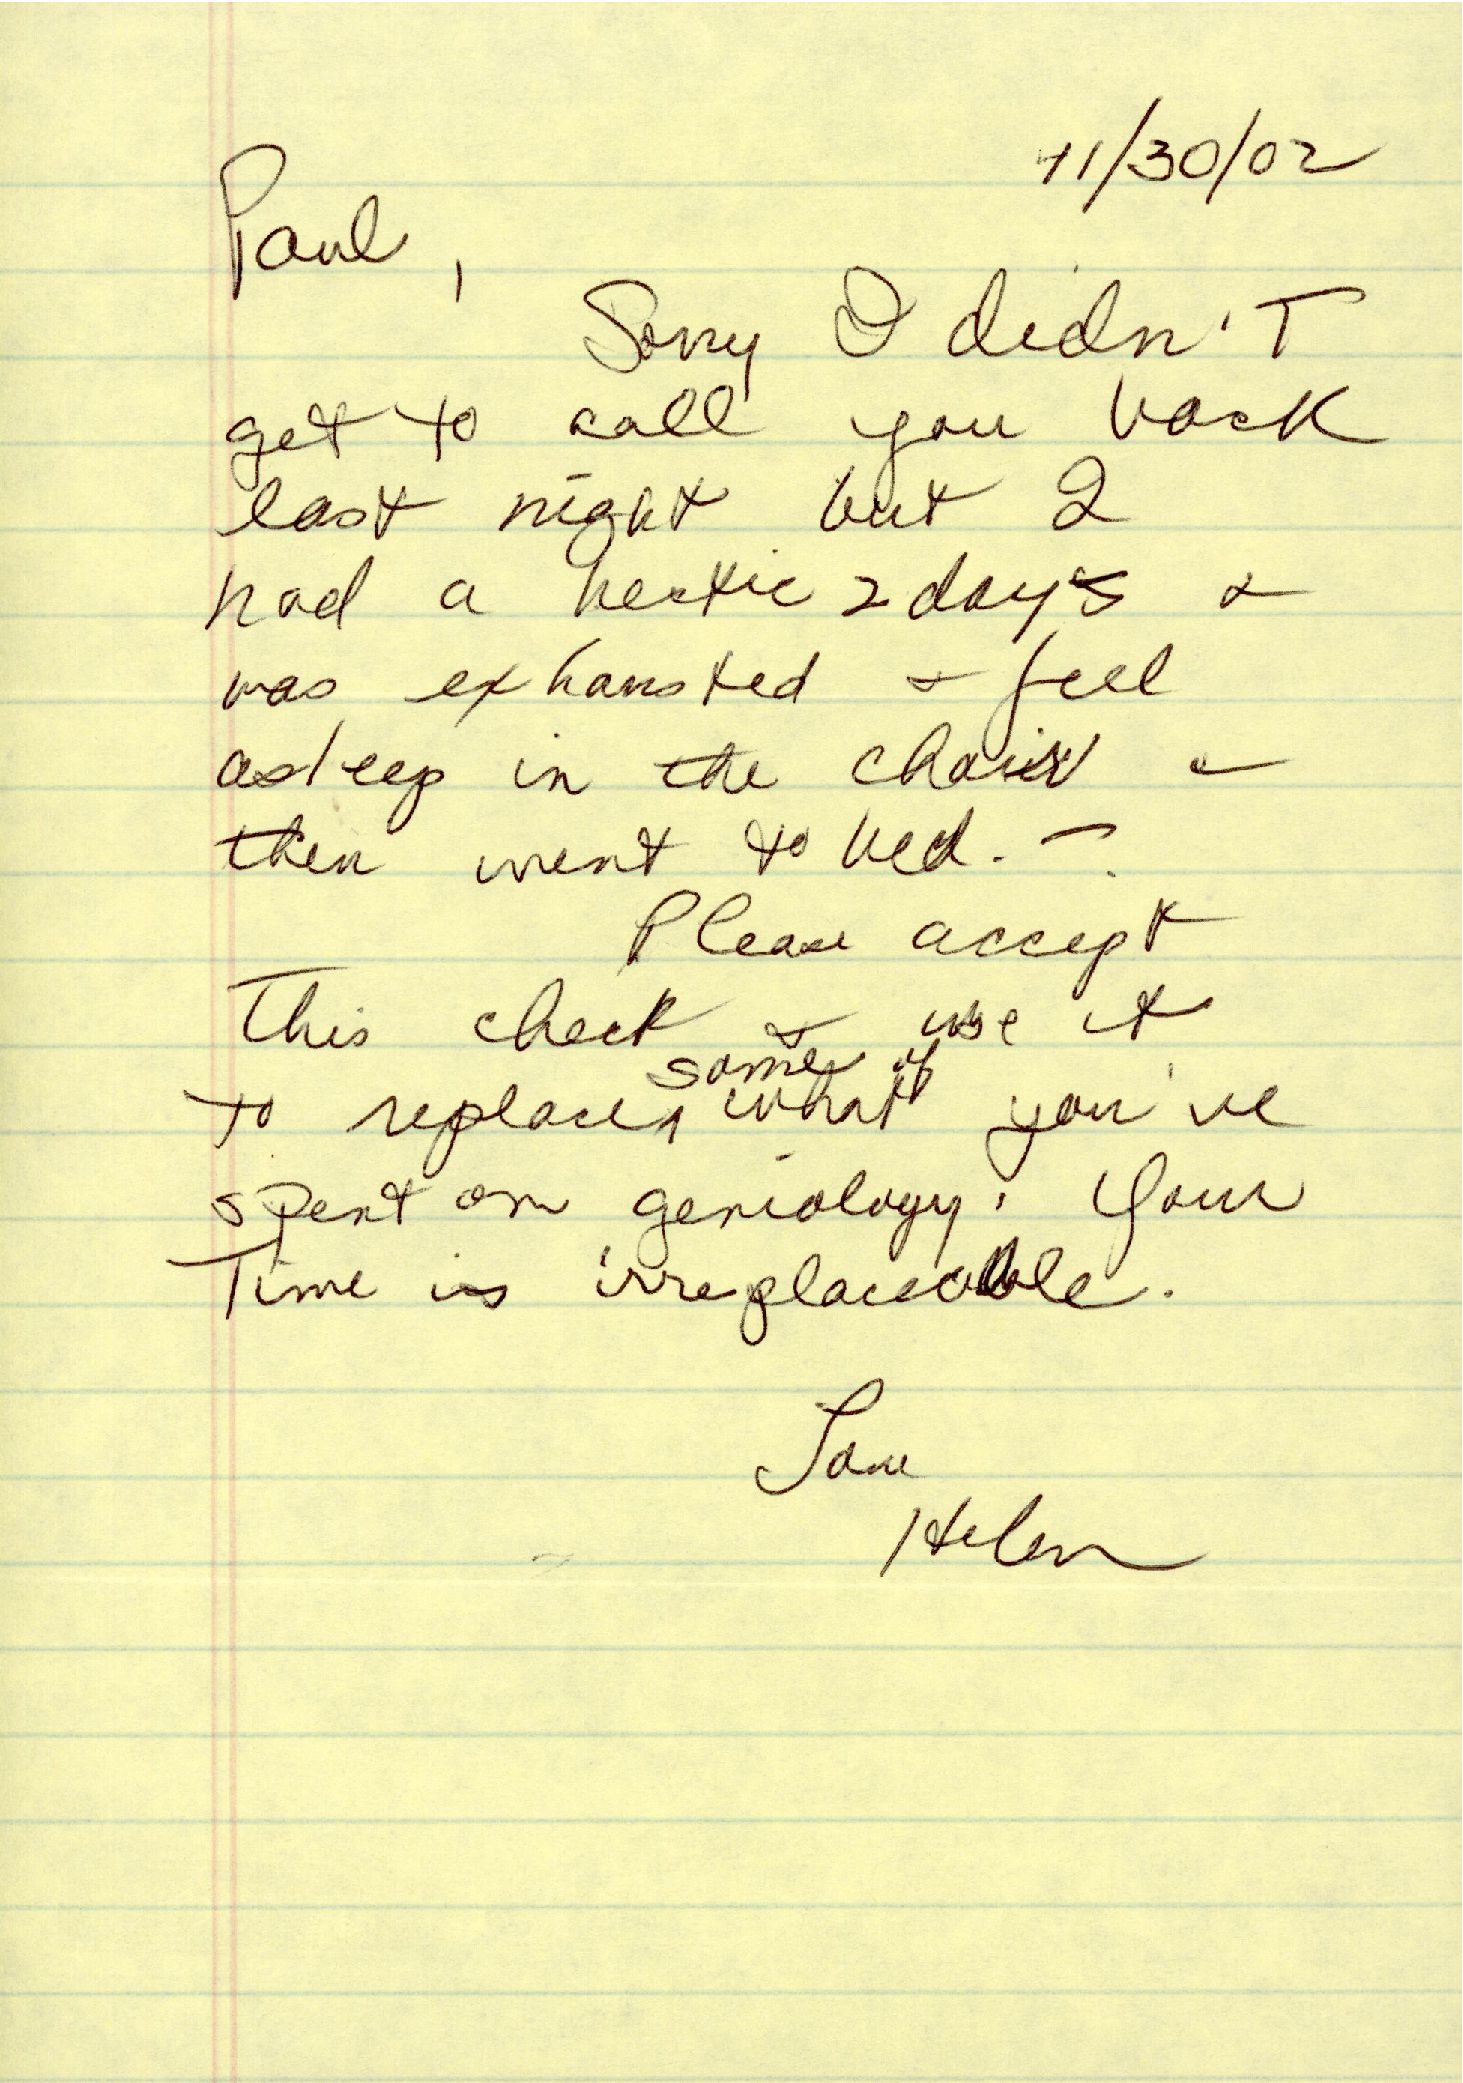 11/30/02
Paul,
Sorry I didn't
get to call you back
last night but I
had a hectic 2 days &
was exhausted & feel
asleep in the chair &
then went to bed. -.
Please accept
This check & use it
some of
to replace, what you've
spent on geniology. Your
Time is irreplaceable.
Love
Helen